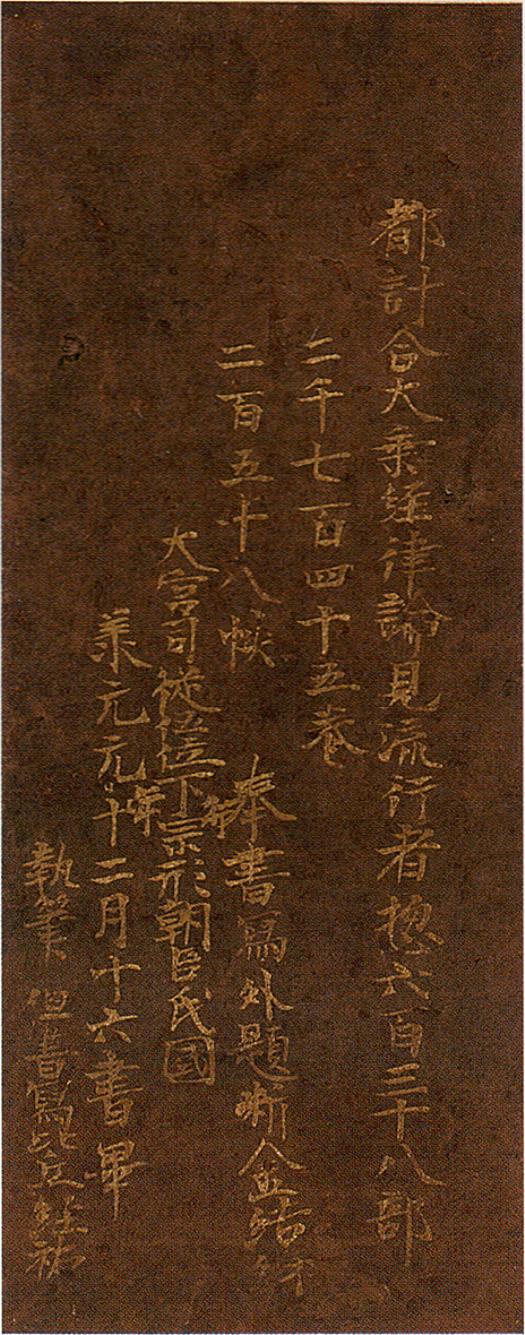 都計合大乘経律論見流行者惣六百三十八部
二千七百四十五巻
二百五十八帙
奉書寫外題
大宮司従五位下宗形朝臣氏國
承元元年十二月十六書畢
執筆 但書寫 経祐